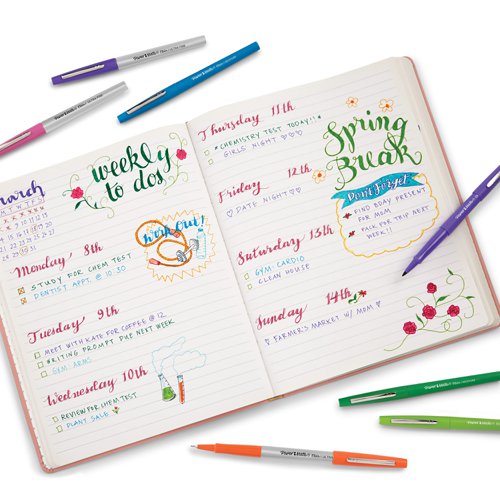 Paper Mate Flair
Paper Mate Flair
weekly
to dos
march
Monday 8th
STUDY FOR CHEM TEST
DENTIST APPT. @ 10:30
workout!
Tuesday 9th
MEET WITH KATE FOR COFFEE @ 12
WRITING PROMPT DUE NEXT WEEK
GYM: ARMS
Wednesday 10th
REVIEW FOR CHEM TEST
PLANT SALE
Thursday 11th
*CHEMISTRY TEST TODAY!!*
GIRLS NIGHT ♡♡♡
Friday 12th
♡ DATE NIGHT ♡
Saturday 13th
GYM: CARDIO
CLEAN HOUSE
Sunday 14th
♡ FARMER'S MARKET W/ MOM ♡
Spring
Break
Don't Forget:
FIND BDAY PRESENT
FOR MOM
PACK FOR TRIP NEXT
WEEK!!
Paper Mate Flair
Paper Mate Flair
Paper Mate Flair